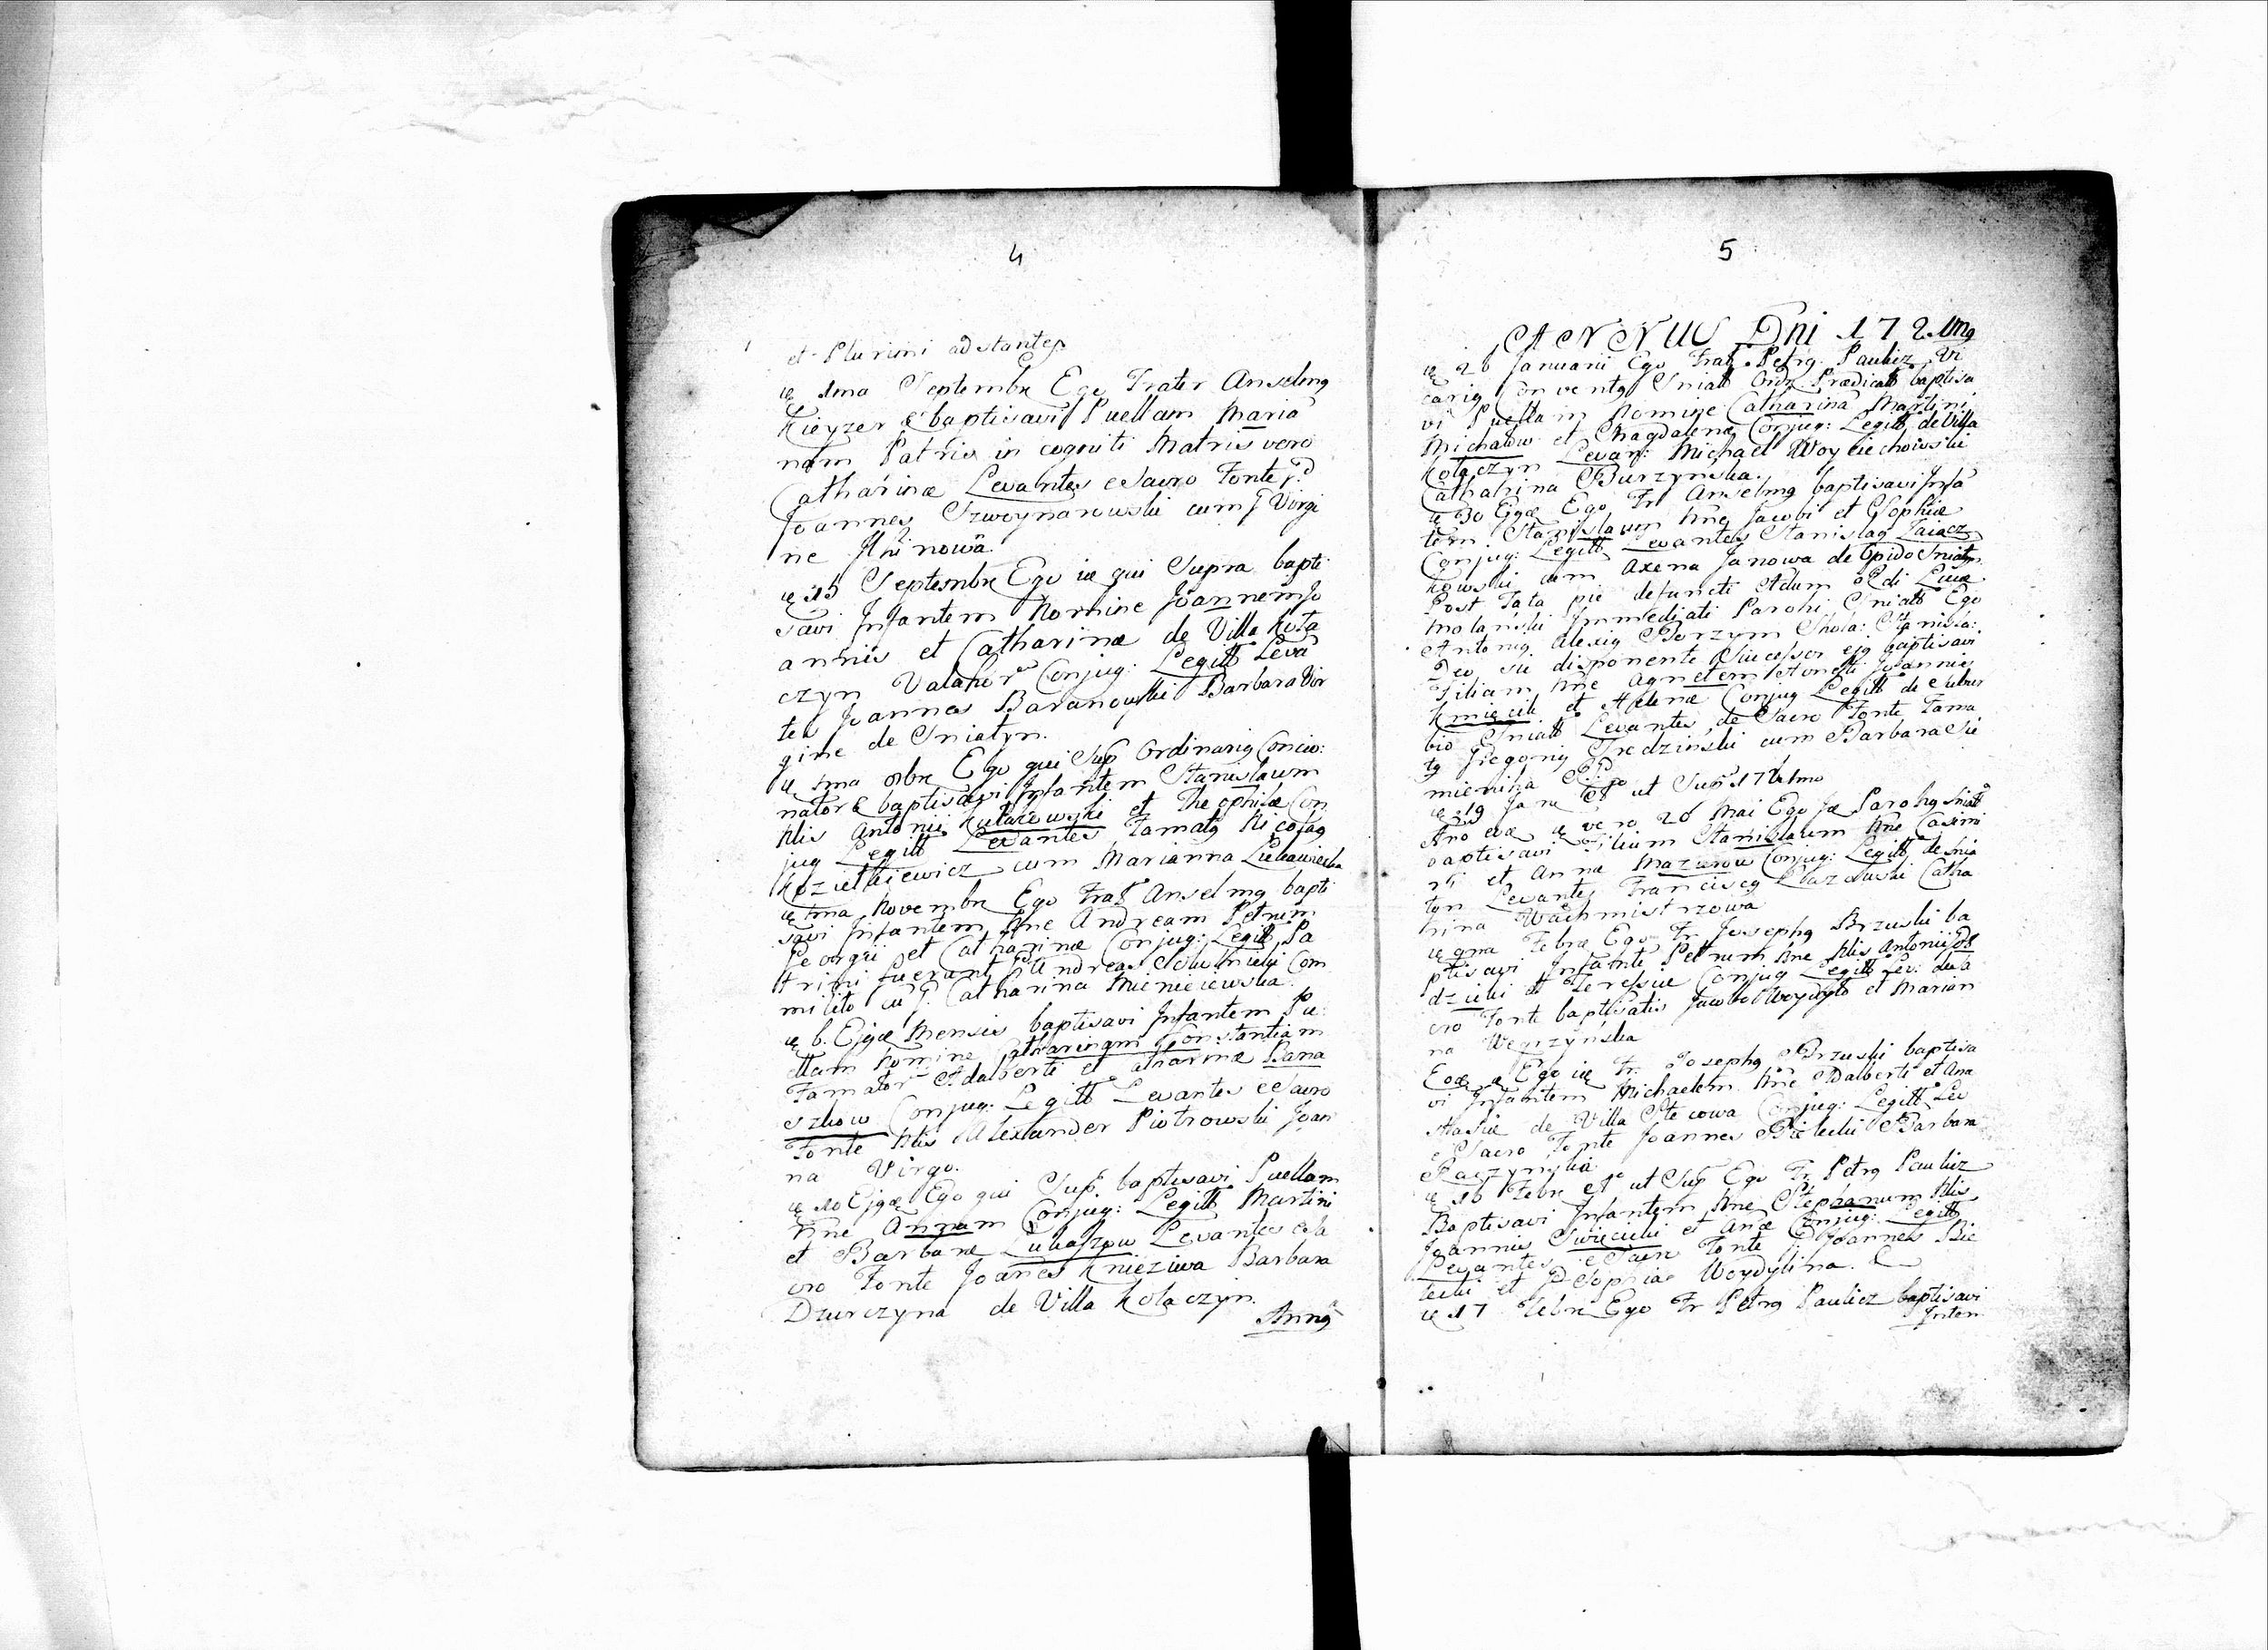 4
et Plurimi adstantes
ie 1ma Septembr Ego Frater Anselmg
Kieyzer baptisavi Puellam Maria
nam Patris in cogniti Matris vero
Catharinæ Levantes e Sacro Fonte
Joannes Szwoynarowski cum Virgi
ne
ie 15 Septembr Ego ie qui Supra bapti
savi Infantem Nomine Joannem Jo
annis et Catharinæ de Villa Kola
czyn Valahor Conjug: Legitt Leva
tes Joannes Baranowski Barbara Vir
gine de Sniatyn.
ie 1ma 8bre Ego qui Sup Ordinarig Concio:
nator baptisavi Infantem Stanislaum
Nlis Antonii Kulakowski et Theophilæ Con
jug Legitt Levantes Famatg Nicolag
Kozietkiewicz cum Marianna
ie 1ma Novembr Ego Frat Anselmg bapti
savi Infantem Nne Andream Petrum
Georgii et Catharinæ Conjug: Legitt Pa
trini fuerunt Andreas Com
milito cu Catharina
ie 6. Ejgæ Mensis baptisavi Infantem Pu:
ellam Nomine Catharinam Constantiam
Famator Adalberti et Catharinæ Bana
szkow Conjug: Legitt Levantes e Sacro
Fonte Nlis Alexander Piotrowski Joan
na Virgo.
ie 10 Ejgæ Ego qui Sup. baptisavi Puellam
Nne Annam Conjug: Legitt Martini
et Barbaræ Lukaszow Levantes e Sa
cro Fonte Joanes Knieziwa Barbara
Dzurczyna de Villa Kolaczyn.
Anng
5
ANNUS Dni 1721mg
ie 26 Januarii Ego Frat Petrg Pauliez Vi
carig Conventg Sniatt Ordi Prædicatt baptisa
vi Puellam Nomine Catharina Martini
Michalow et Magdalenæ Conjug: Legitt de Villa
Kolaczyn Levan: Michael Woyciechowski
Catharina Burzynska.
ie 30 Ejgæ Ego Fr Anselmg baptisavi Infa
tem Stanislaum Nne Jacobi et Sophiæ
Conjug: Legitt Levantes Stanislag Zaiacz
kowski cum Axena Janowa de Opido Sniatyn
Post Fata pie defuncti Adum Rdi Lucæ
Molanski Immediati Parohi Sniatt Ego
Antonig Alexig Borzym Skola: Stanisla:
Deo sic disponente Successor ejg baptisavi
Filiam Nne Agnetem Honesti Joannis
Kmiecik et Helenæ Conjug Legitt de Subur
bio Sniatt Levantes de Sacro Fonte Fama
tg Gregorig Sredzinski cum Barbara Sie
mienska
ie 19 Jan ut Sup 1721mo
Ano eod ie vero 26 Mai Ego Parohg Sniatt
baptisavi Filium Stanislaum Nne Casimi
ri et Annæ Mazurow Conjug: Legitt de Snia
tyn Levantes Franciscg Catha
rina Wachmistrzowa
ie 9na Febræ Ego Fr Josephg Brzuski ba
ptisavi Infante Petrum Nne Nlis Antonii
dzicki et Teresiæ Conjug Legitt Lev: de Sa
cro Fonte baptisatis Jacobo Woydylo et Marian
na Wegrzynska
Eod Ego ie Fr. Josephg Brzuski baptisa
vi Infantem Michaelem Nne Dalberti et Ana
stasiæ de Villa Stecowa Conjug: Legitt Lev
e Sacro Fonte Joannes Bielecki Barbara
Raczynska
ie 16 Febr ut Sup Ego Fr Petrg Pauliez
Baptisavi Infantem Nne Stephanum Nlis
Joannis Swiecicki et Anæ Conjug: Legitt
Levantes e Sacro Fonte Joannes Bie
lecki et Sophia Woydylina.
ie 17 Febr Ego Fr Petrg Pauliez baptisavi
Infan